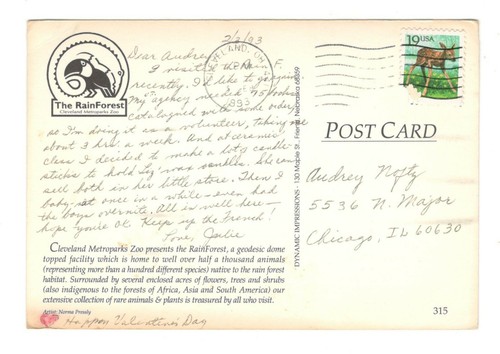 2/2/93
Dear Audrey
I visited the Rain F.
recently. I'd like to
My agency needed 75 books
catalogued with
so I'm doing it as a volunteer, taking me
about 3 hrs. a week. And at ceramic
class I decided to make a lot of candle-
sticks to hold wax candles. She can
sell both in her little store. Then I
baby-sit once in a while - even had
the boys overnite. All is well here -
hope you're OK. Keep up the French!
Love,
The RainForest
Cleveland Metroparks Zoo
CLEVELAND, OH
1993
19 USA
POST CARD
Audrey
5536 N. Major
Chicago, IL 60630
DYNAMIC IMPRESSIONS - 130 Maple St., Friend, Nebraska 68359
Cleveland Metroparks Zoo presents the RainForest, a geodesic dome
topped facility which is home to well over half a thousand animals
(representing more than a hundred different species) native to the rain forest
habitat. Surrounded by several enclosed acres of flowers, trees and shrubs
(also indigenous to the forests of Africa, Asia and South America) our
extensive collection of rare animals & plants is treasured by all who visit.
Artist: Norma
315
Happy Valentine's Day